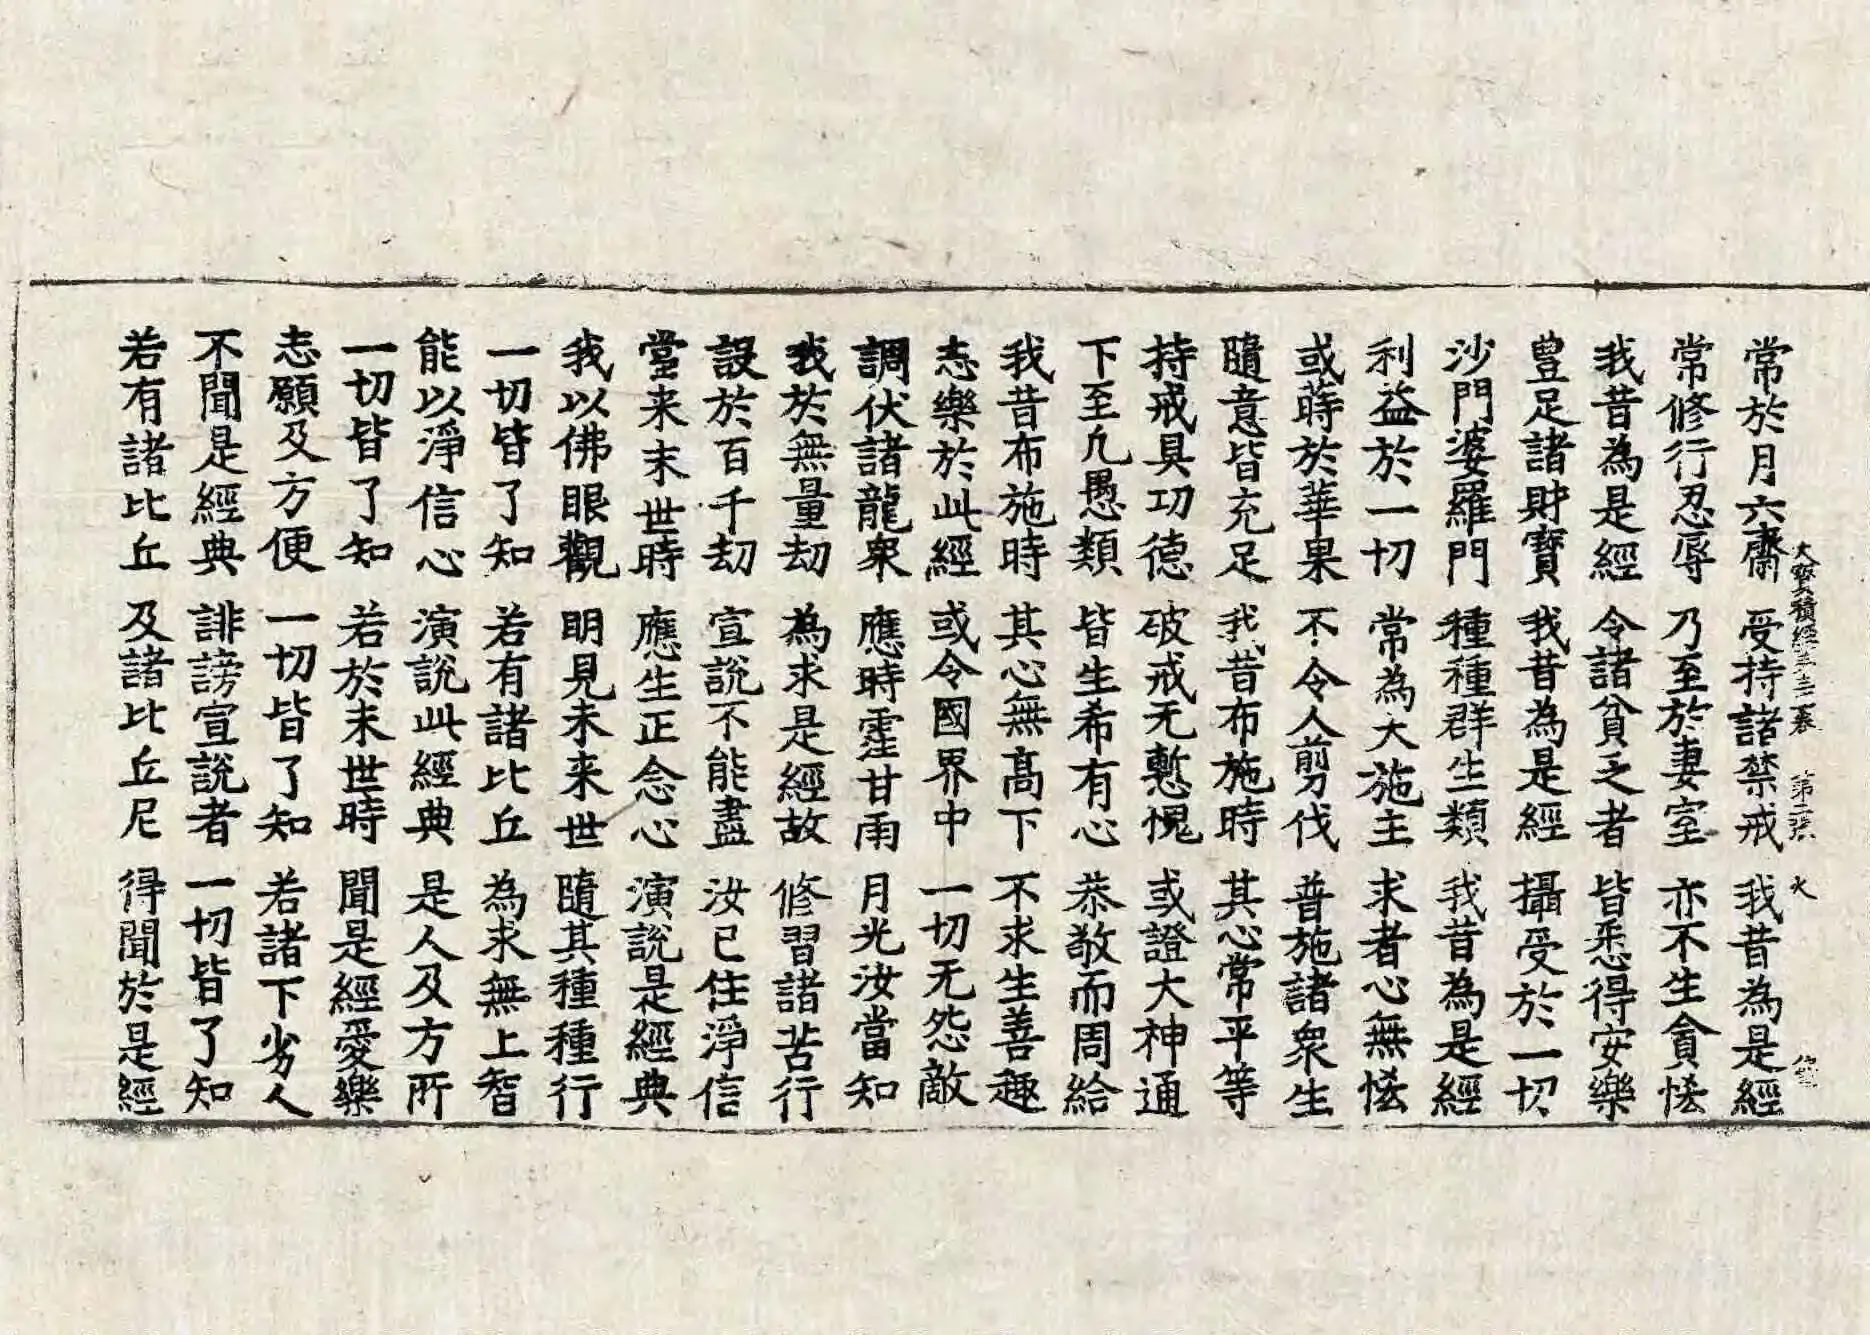 常於月六齋 受持諸禁戒 我昔為是經
大寶積經 卷 第二張 火
常修行忍辱 乃至於妻室 亦不生貪悋
我昔為是經 令諸貧乏者 皆悉得安樂
豊足諸財寶 我昔為是經 攝受於一切
沙門婆羅門 種種群生類 我昔為是經
利益於一切 常為大施主 求者心無悋
或蒔於華果 不令人剪伐 普施諸衆生
隨意皆充足 我昔布施時 其心常平等
持戒具功德 破戒无慙愧 或證大神通
下至凢愚類 皆生希有心 恭敬而周給
我昔布施時 其心無髙下 不求生善趣
志樂於此經 或令國界中 一切无怨敵
調伏諸龍衆 應時霔甘雨 月光汝當知
我於無量劫 為求是經故 修習諸苦行
設於百千劫 宣說不能盡 汝已住淨信
當来末世時 應生正念心 演說是經典
我以佛眼觀 明見未来世 隨其種種行
一切皆了知 若有諸比丘 為求無上智
能以淨信心 演說此經典 是人及方所
一切皆了知 若於末世時 聞是經愛樂
志願及方便 一切皆了知 若諸下劣人
不聞是經典 誹謗宣說者 一切皆了知
若有諸比丘 及諸比丘尼 得聞於是經